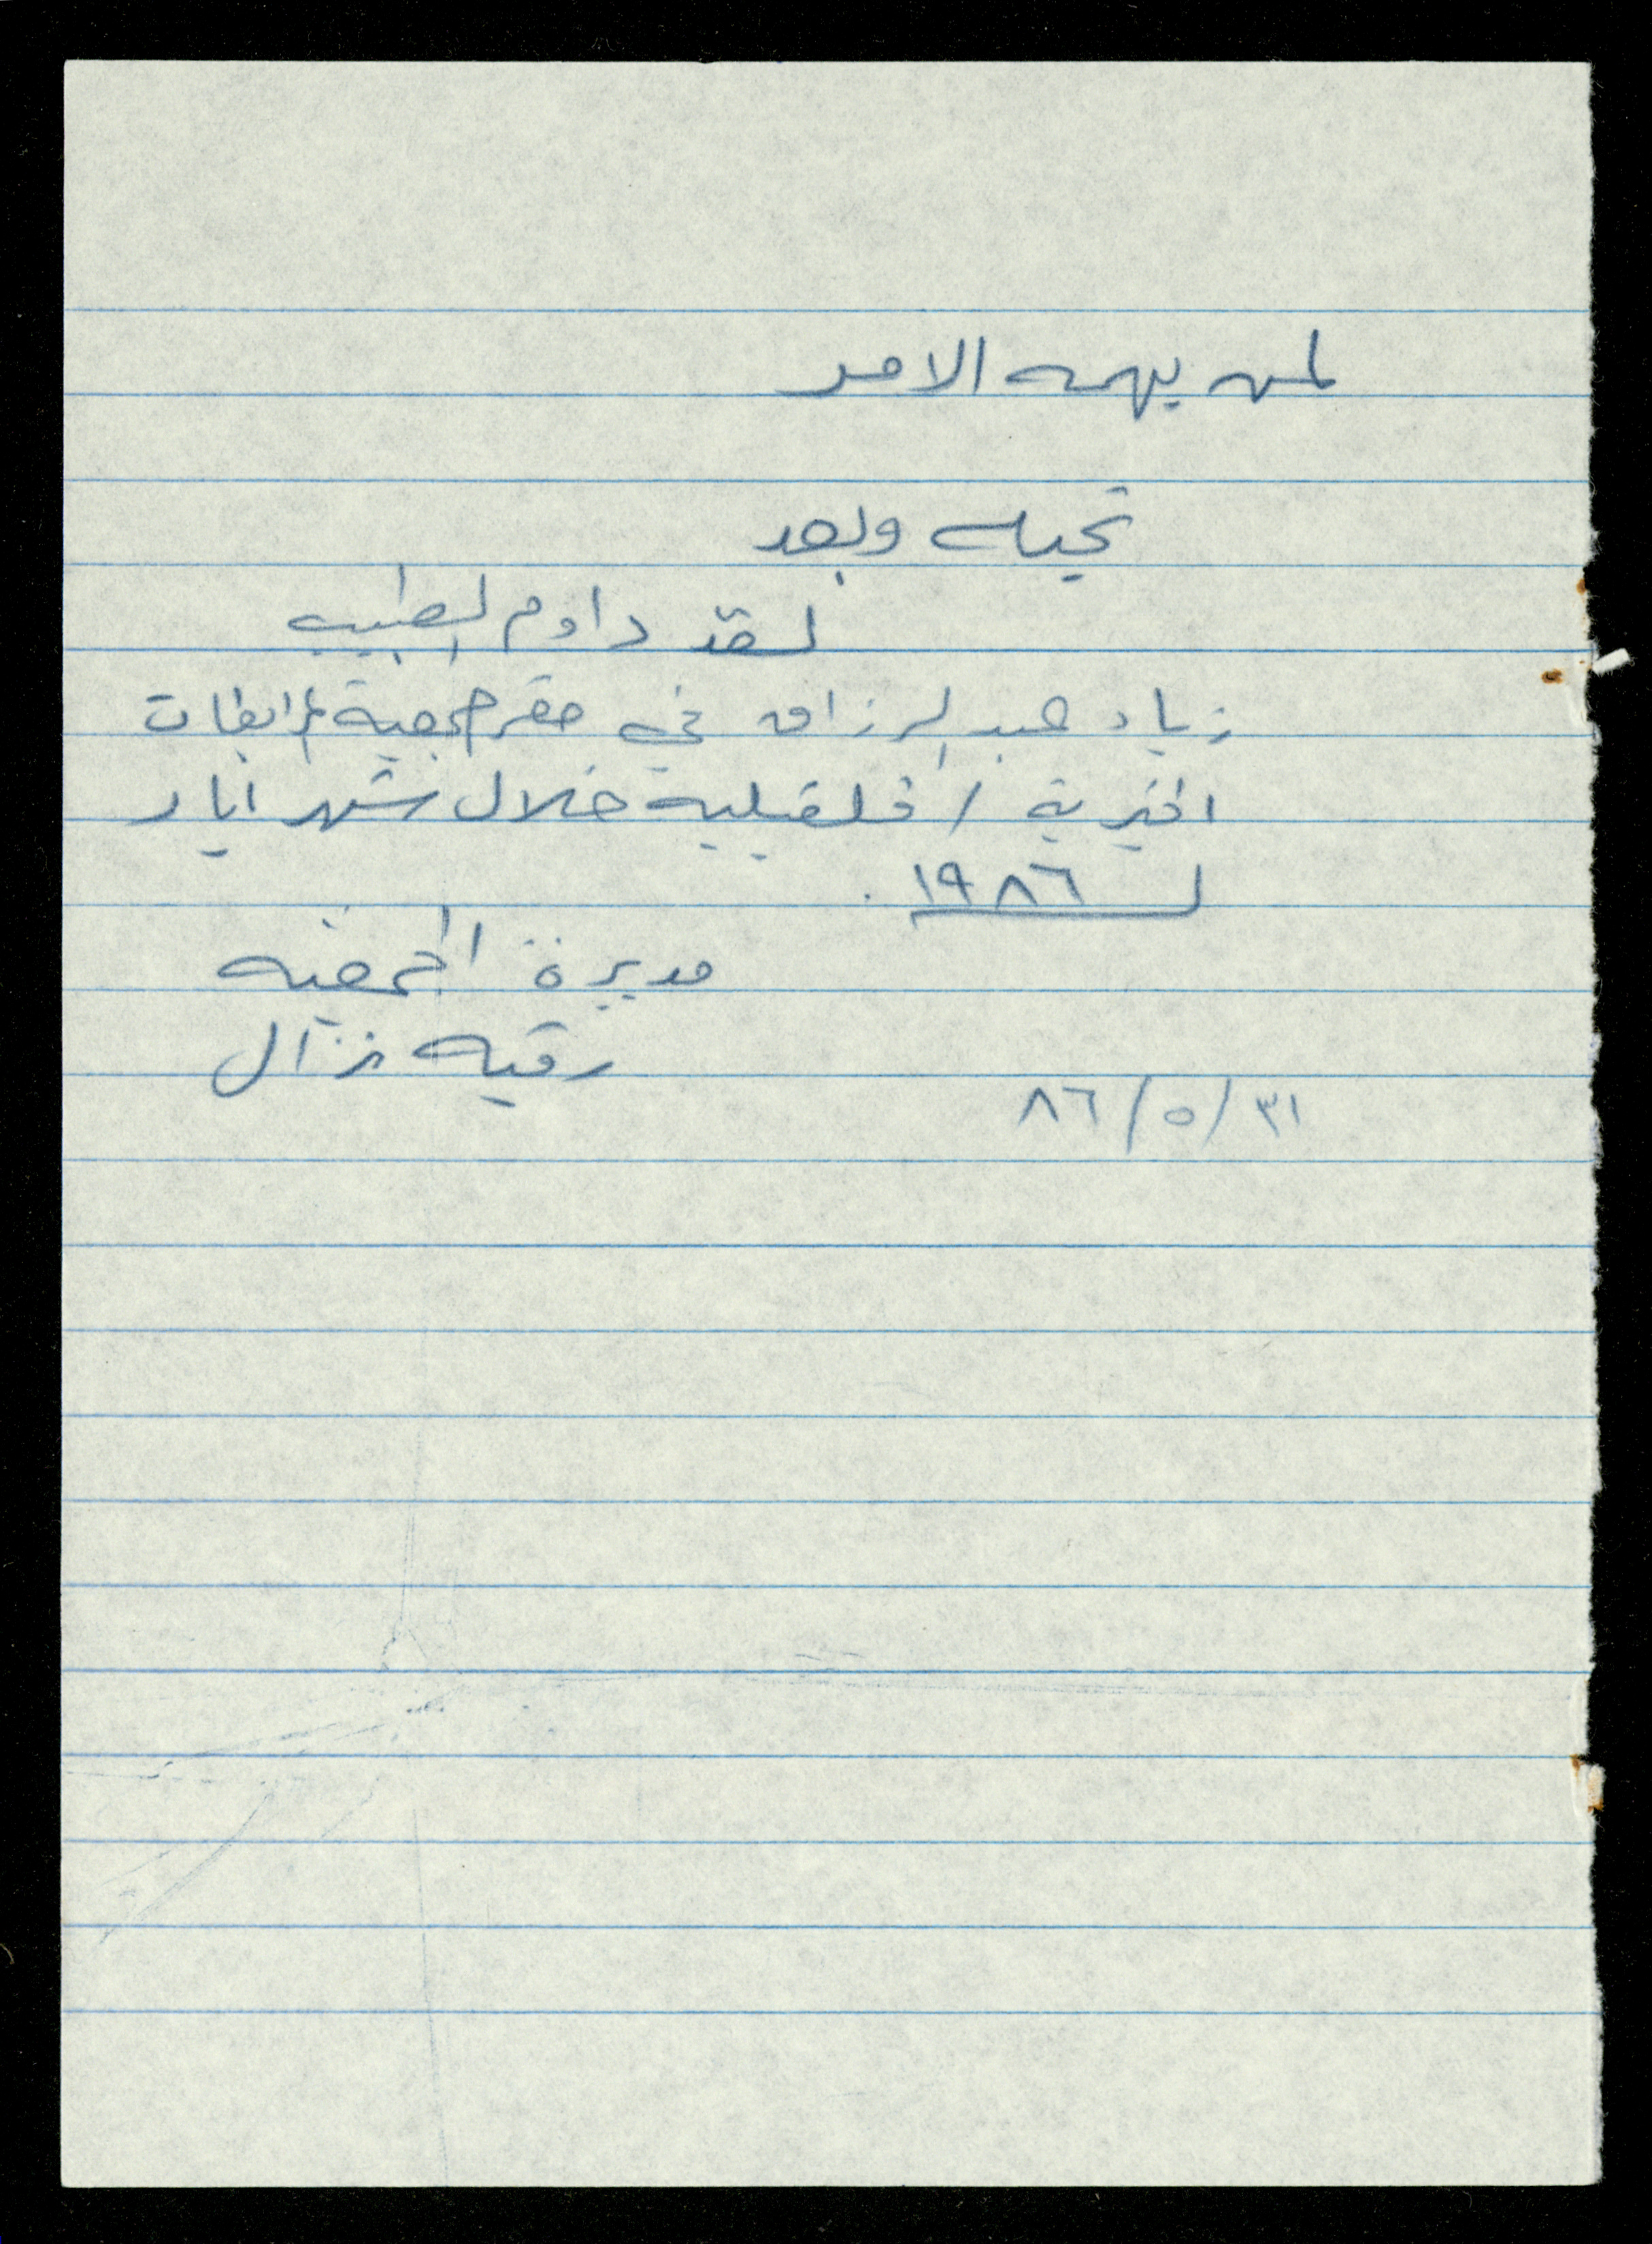 لمن يهمه الامر
تحيه وبعد
لقد داوم الطبيب
زياد عبد الرزاق في مقر جمعية المرابطات
الخيرية / قلقيلية خلال شهر ايار
لـ ١٩٨٦ .
مديرة الجمعيه
رقيه نزال
٣١/٥/٨٦